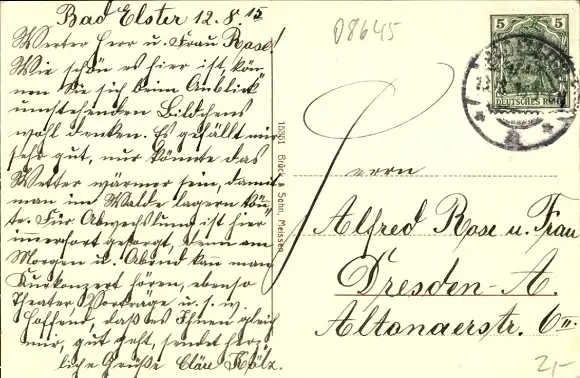 Bad Elster 12.8.15
Werter Herr u. Frau Rose!
Wie schön es hier ist, kön-
nen Sie sich beim Anblick
umstehenden Bildchens
wohl denken. Es gefällt mir
sehr gut, nur könnte das
Wetter wärmer sein, damit
man im Walde lagern kön̄-
te. Für Abwechslung ist hier
immerfort gesorgt, denn am
Morgen u. Abend kan̄ man
Kurkonzert hören, ebenso
Theater, Vorträge u. s. w.
Hoffend, daß es Ihnen gleich
mir, gut geht, sendet herz-
liche Grüße Cläre Kölz.
15351 Brück & Sohn, Meissen.
D8645
5 5
DEUTSCHES REICH
Herrn
Alfred Rose u. Frau
Dresden-A.
Altonaerstr. 6 II.
2,-